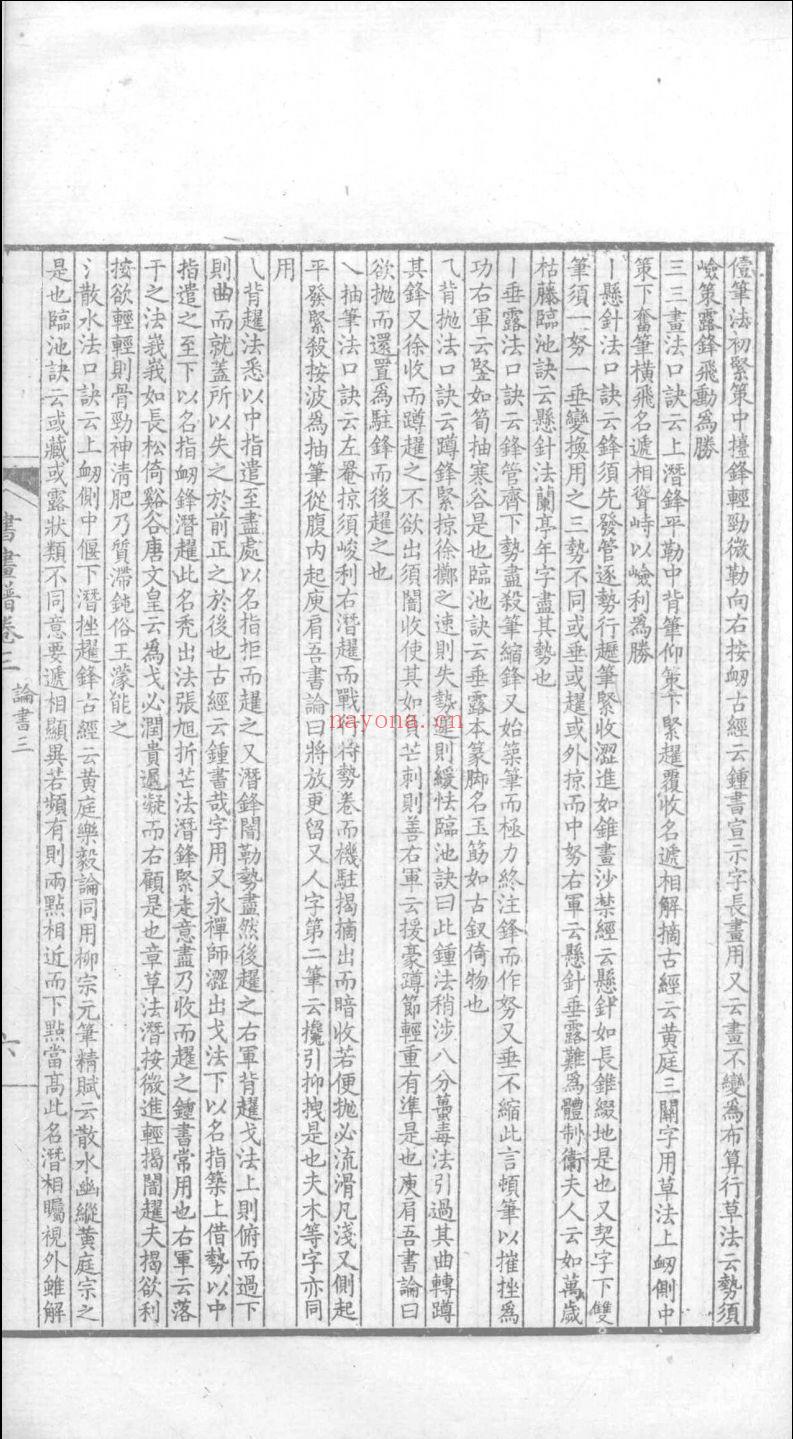 儓筆法初緊策中擡鋒輕勁微勒向右按衂古經云鍾書宣示字長畫用又云畫不變爲布算行草法云勢須
嶮策露鋒飛動爲勝
三三畫法口訣云上潛鋒平勒中背筆仰策下緊趯覆收名遞相解摘古經云黄庭三關字用草法上衂側中
策下奮筆橫飛名遞相聳峙以嶮利爲勝
丨懸針法口訣云鋒須先發管逐勢行趯筆緊收澀進如錐畫沙禁經云懸針如長錐綴地是也又契字下雙
筆須一努一垂變換用之三勢不同或垂或趯或外掠而中努右軍云懸針垂露難爲體制衞夫人云如萬歲
枯藤臨池訣云懸針法蘭亭年字盡其勢也
丨垂露法口訣云鋒管齊下勢盡殺筆縮鋒又始築筆而極力終注鋒而作努又垂不縮此言頓筆以摧挫爲
功右軍云竪如筍抽寒谷是也臨池訣云垂露本篆脚名玉筯如古釵倚物也
乁背抛法口訣云蹲鋒緊掠徐擲之速則失勢遲則緩怯臨池訣曰此鍾法稍涉八分蠆毒法引過其曲轉蹲
其鋒又徐收而蹲趯之不欲出須闇收使其如負芒刺則善右軍云援豪蹲節輕重有準是也庾肩吾書論曰
欲抛而還置爲駐鋒而後趯之也
乀抽筆法口訣云左罨掠須峻利右潛趯而戰行待勢卷而機駐揭摘出而暗收若便抛必流滑凡淺又側起
平發緊殺按波爲抽筆從腹内起庾肩吾書論曰將放更留又人字第二筆云攙引抑拽是也夫木等字亦同
用
乀背趯法悉以中指遣至盡處以名指拒而趯之又潛鋒闇勒勢盡然後趯之右軍背趯戈法上則俯而過下
則曲而就蓋所以失之於前正之於後也古經云鍾書哉字用又永禪師澀出戈法下以名指築上借勢以中
指遣之至下以名指衂鋒潛趯此名秃出法張旭折芒法潛鋒緊走意盡乃收而趯之鍾書常用也右軍云落
于之法峩峩如長松倚谿谷唐文皇云爲戈必潤貴遲疑而右顧是也章草法潛按微進輕揭闇趯夫揭欲利
按欲輕輕則骨勁神清肥乃質滯鈍俗王濛能之
氵散水法口訣云上衂側中偃下潛挫趯鋒古經云黄庭樂毅論同用柳宗元筆精賦云散水幽縱黄庭宗之
是也臨池訣云或藏或露狀類不同意要遞相顯異若頻有則兩點相近而下點當高此名潛相矚視外雖解
書畫譜卷三 論書三
六
nayona.cn